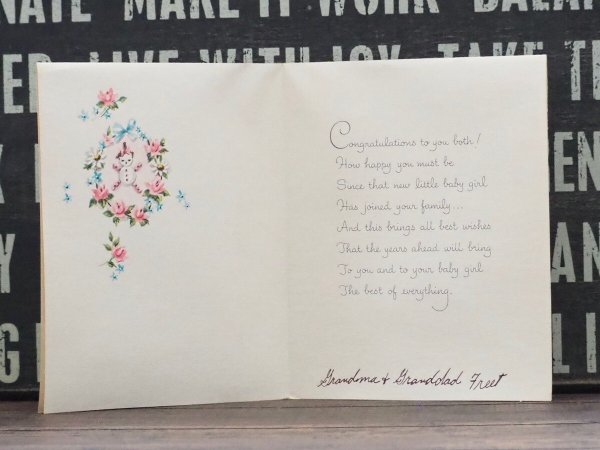 NATE MAKE IT WORK
ER LIVE WITH JOY TAKE
Congratulations to you both!
How happy you must be
Since that new little baby girl
Has joined your family...
And this brings all best wishes
That the years ahead will bring
To you and to your baby girl
The best of everything.
Grandma & Granddad Freet